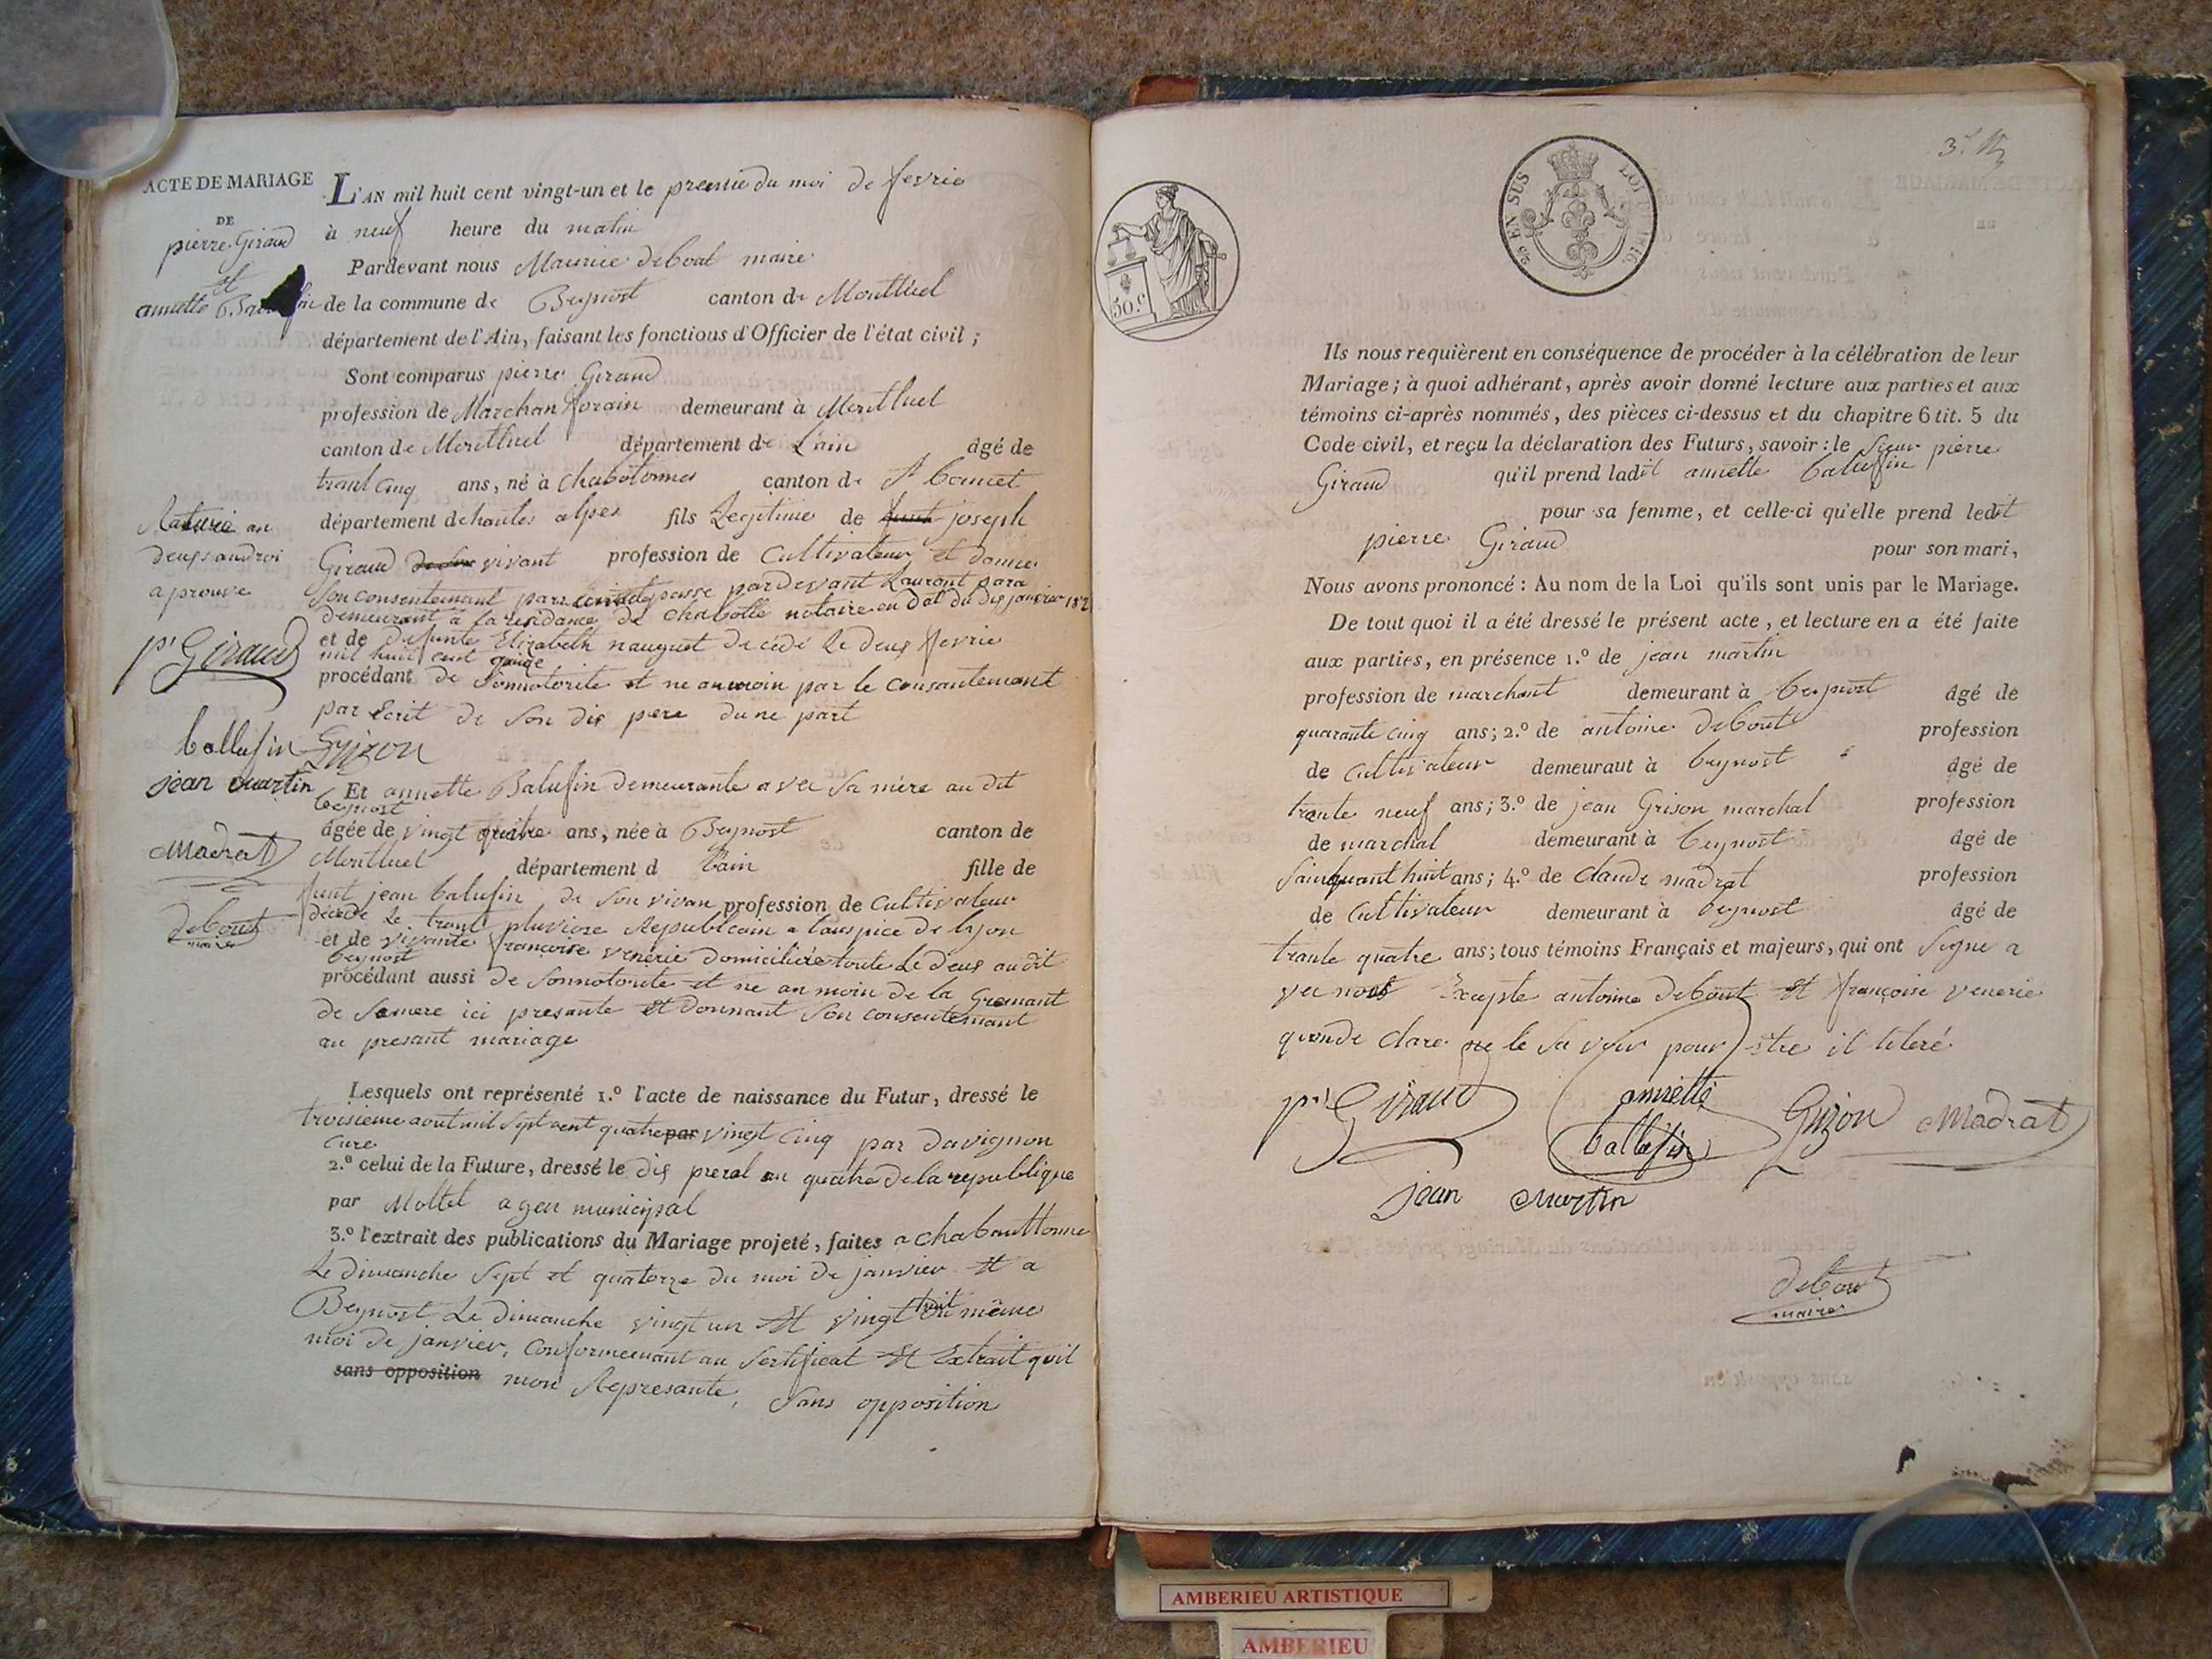 ACTE DE MARIAGE
DE
pierre Giraud
et
annette
L'AN mil huit cent vingt-un et le premie du moi de fevrie
à neuf heure du matin
Pardevant nous Maurice debout maire
de la commune de Beynost canton de Montluel
département de l'Ain, faisant les fonctions d'Officier de l'état civil ;
Sont comparus pierre Giraud
profession de Marchan forain demeurant à Montluel
canton de Montluel département de L'ain âgé de
trant cinq ans, né à chabotonnes canton de St bonnet
département de hautes alpes fils Legitime de joseph
Giraud vivant profession de Cultivateur et donne
Son consentemant par passe pardevant Laurant para
demeurant a la residance de chabotte notaire en dat du dix janvier 182
et de defunte Elizabeth nauguet decédé Le deux fevrie
mil huit cent quinze
procédant de Sonnotorite et ne anmoin par le consantemant
par Ecrit de Son dis pere dune part
Raturie au
deux androi
aprouve
pr Giraud
ballufin Grizon
jean martin
Madrat
debout
maire
Et annette Balufin demeurante avec Sa mère au dit
beynost
âgée de vingt quatre ans, née à Beynost canton de
Montluel département d Lain fille de
funt jean balufin de Son vivan profession de Cultivateur
décédé Le trent pluviose Republicain a lauspice de lyon
et de vivante françoise venerie domiciliée toute Le deux au dit
beynost
procédant aussi de Sonnotorite et ne anmoin de la Gremant
de Samere ici presante et donnant Son consentemant
au presant mariage
Lesquels ont représenté 1.º l'acte de naissance du Futur, dressé le
troisieme aout mil Sept cent quatre par vingt Cinq par Davignon
Cure
2.º celui de la Future, dressé le dix preral an quatre de la republique
par Mottet agen municipal
3.º l'extrait des publications du Mariage projeté, faites a chabouttonne
Le dimanche Sept et quatorze du moi de janvier et a
Beynost Le dimanche vingt un et vingt huit du même
moi de janvier, Conformemant au Sertificat et Extrait quil
sans opposition mon Represante, Sans opposition
50.c
EN SUS
LOI 1816
Ils nous requièrent en conséquence de procéder à la célébration de leur
Mariage ; à quoi adhérant, après avoir donné lecture aux parties et aux
témoins ci-après nommés, des pièces ci-dessus et du chapitre 6 tit. 5 du
Code civil, et reçu la déclaration des Futurs, savoir : le Sieur pierre
Giraud qu'il prend ladit annette balufin
pour sa femme, et celle-ci qu'elle prend ledit
pierre Giraud pour son mari,
Nous avons prononcé : Au nom de la Loi qu'ils sont unis par le Mariage.
De tout quoi il a été dressé le présent acte, et lecture en a été faite
aux parties, en présence 1.º de jean martin
profession de marchant demeurant à beynost âgé de
quarante cinq ans ; 2.º de antoine debout profession
de Cultivateur demeuraut à beynost âgé de
trante neuf ans ; 3.º de jean Grison marchal profession
de marchal demeurant à beynost âgé de
Sainquant huit ans ; 4.º de Claude madrat profession
de Cultivateur demeurant à beynost âgé de
trante quatre ans ; tous témoins Français et majeurs, qui ont Signe a
vec nous Excepte antoine debout et françoise venerie
quonde clare ne le Savoir pour stre il leteré
pr Giraud annette ballufin Grizon Madrat
jean Martin
debout
maire
AMBERIEU ARTISTIQUE
AMBERIEU